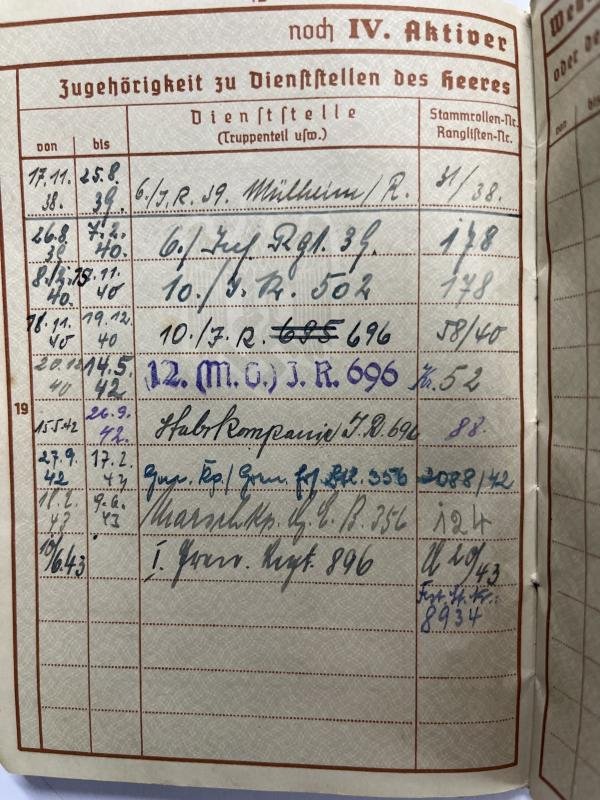 noch IV. Aktiver
Zugehörigkeit zu Dienststellen des Heeres
von bis Dienststelle (Truppenteil usw.) Stammrollen-Nr. Ranglisten-Nr.
17.11. 38. 25.8. 39. 6./J.R. 39. Mülheim/R. 31/38.
26.8. 39 7.2. 40. 6./Inf. Rgt. 39. 178
40. 11. 40 10./J.R. 502 178
18.11. 40 19.12. 40 10./J.R. 695 696 58/40
20.12 40 14.5. 42 12. (M.G.) J.R. 696 Nr. 52
19
15.5.42 26.9. 42. Stabskompanie J.R. 696 88
27.9. 42 17.2. 43 Gen. Kp./Gren. Btl. 356 2088/42
18.2. 43 9.6. 43 Marschkp. E. B. 356 124
10/6.43 I. Gren. Regt. 896 20/43
8934